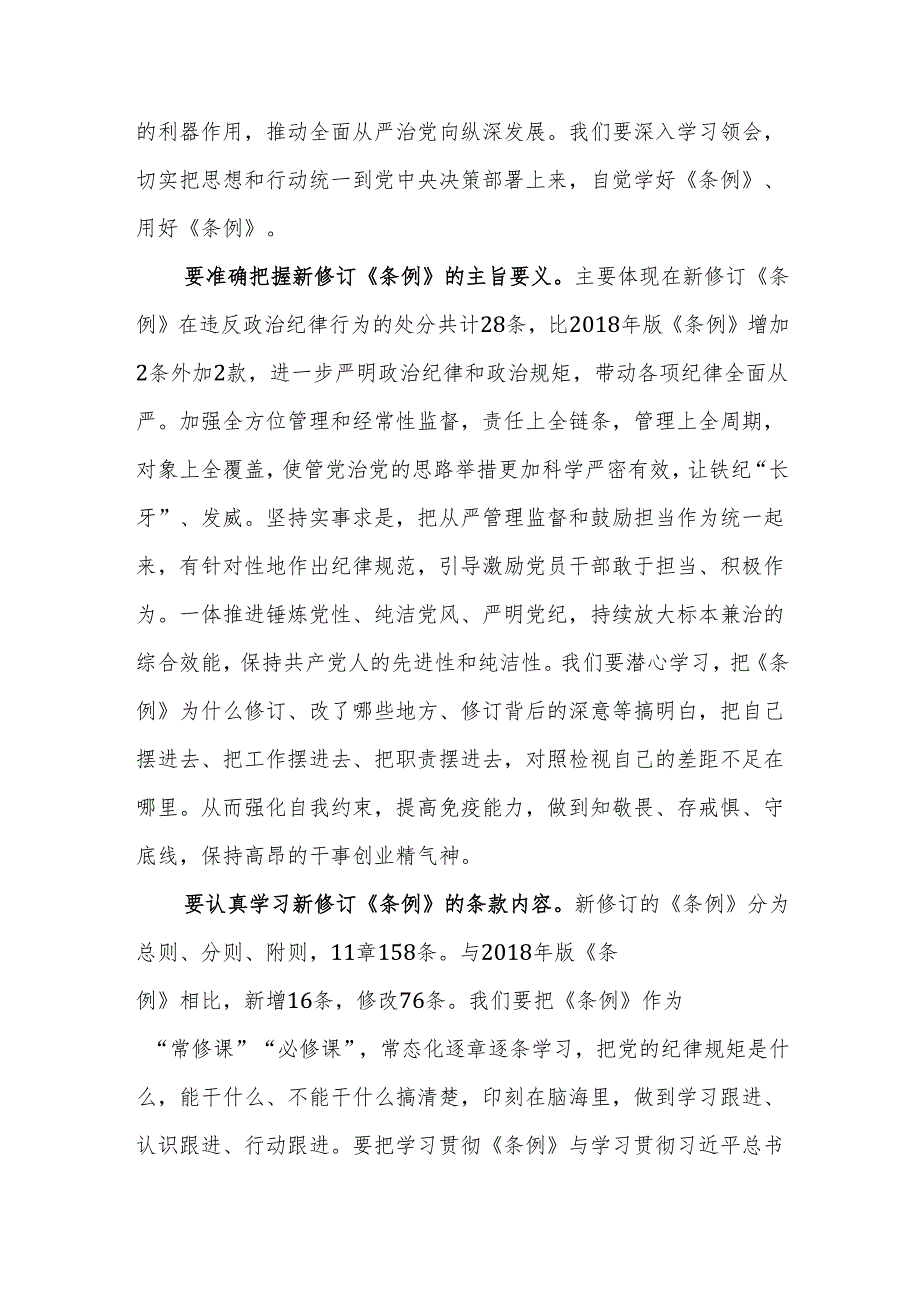 的利器作用，推动全面从严治党向纵深发展。我们要深入学习领会，
切实把思想和行动统一到党中央决策部署上来，自觉学好《条例》、
用好《条例》。
要准确把握新修订《条例》的主旨要义。主要体现在新修订《条
例》在违反政治纪律行为的处分共计28条，比2018年版《条例》增加
2条外加2款，进一步严明政治纪律和政治规矩，带动各项纪律全面从
严。加强全方位管理和经常性监督，责任上全链条，管理上全周期，
对象上全覆盖，使管党治党的思路举措更加科学严密有效，让铁纪“长
牙”、发威。坚持实事求是，把从严管理监督和鼓励担当作为统一起
来，有针对性地作出纪律规范，引导激励党员干部敢于担当、积极作
为。一体推进锤炼党性、纯洁党风、严明党纪，持续放大标本兼治的
综合效能，保持共产党人的先进性和纯洁性。我们要潜心学习，把《条
例》为什么修订、改了哪些地方、修订背后的深意等搞明白，把自己
摆进去、把工作摆进去、把职责摆进去，对照检视自己的差距不足在
哪里。从而强化自我约束，提高免疫能力，做到知敬畏、存戒惧、守
底线，保持高昂的干事创业精气神。
要认真学习新修订《条例》的条款内容。新修订的《条例》分为
总则、分则、附则，11章158条。与2018年版《条
例》相比，新增16条，修改76条。我们要把《条例》作为
“常修课”“必修课”，常态化逐章逐条学习，把党的纪律规矩是什
么，能干什么、不能干什么搞清楚，印刻在脑海里，做到学习跟进、
认识跟进、行动跟进。要把学习贯彻《条例》与学习贯彻习近平总书